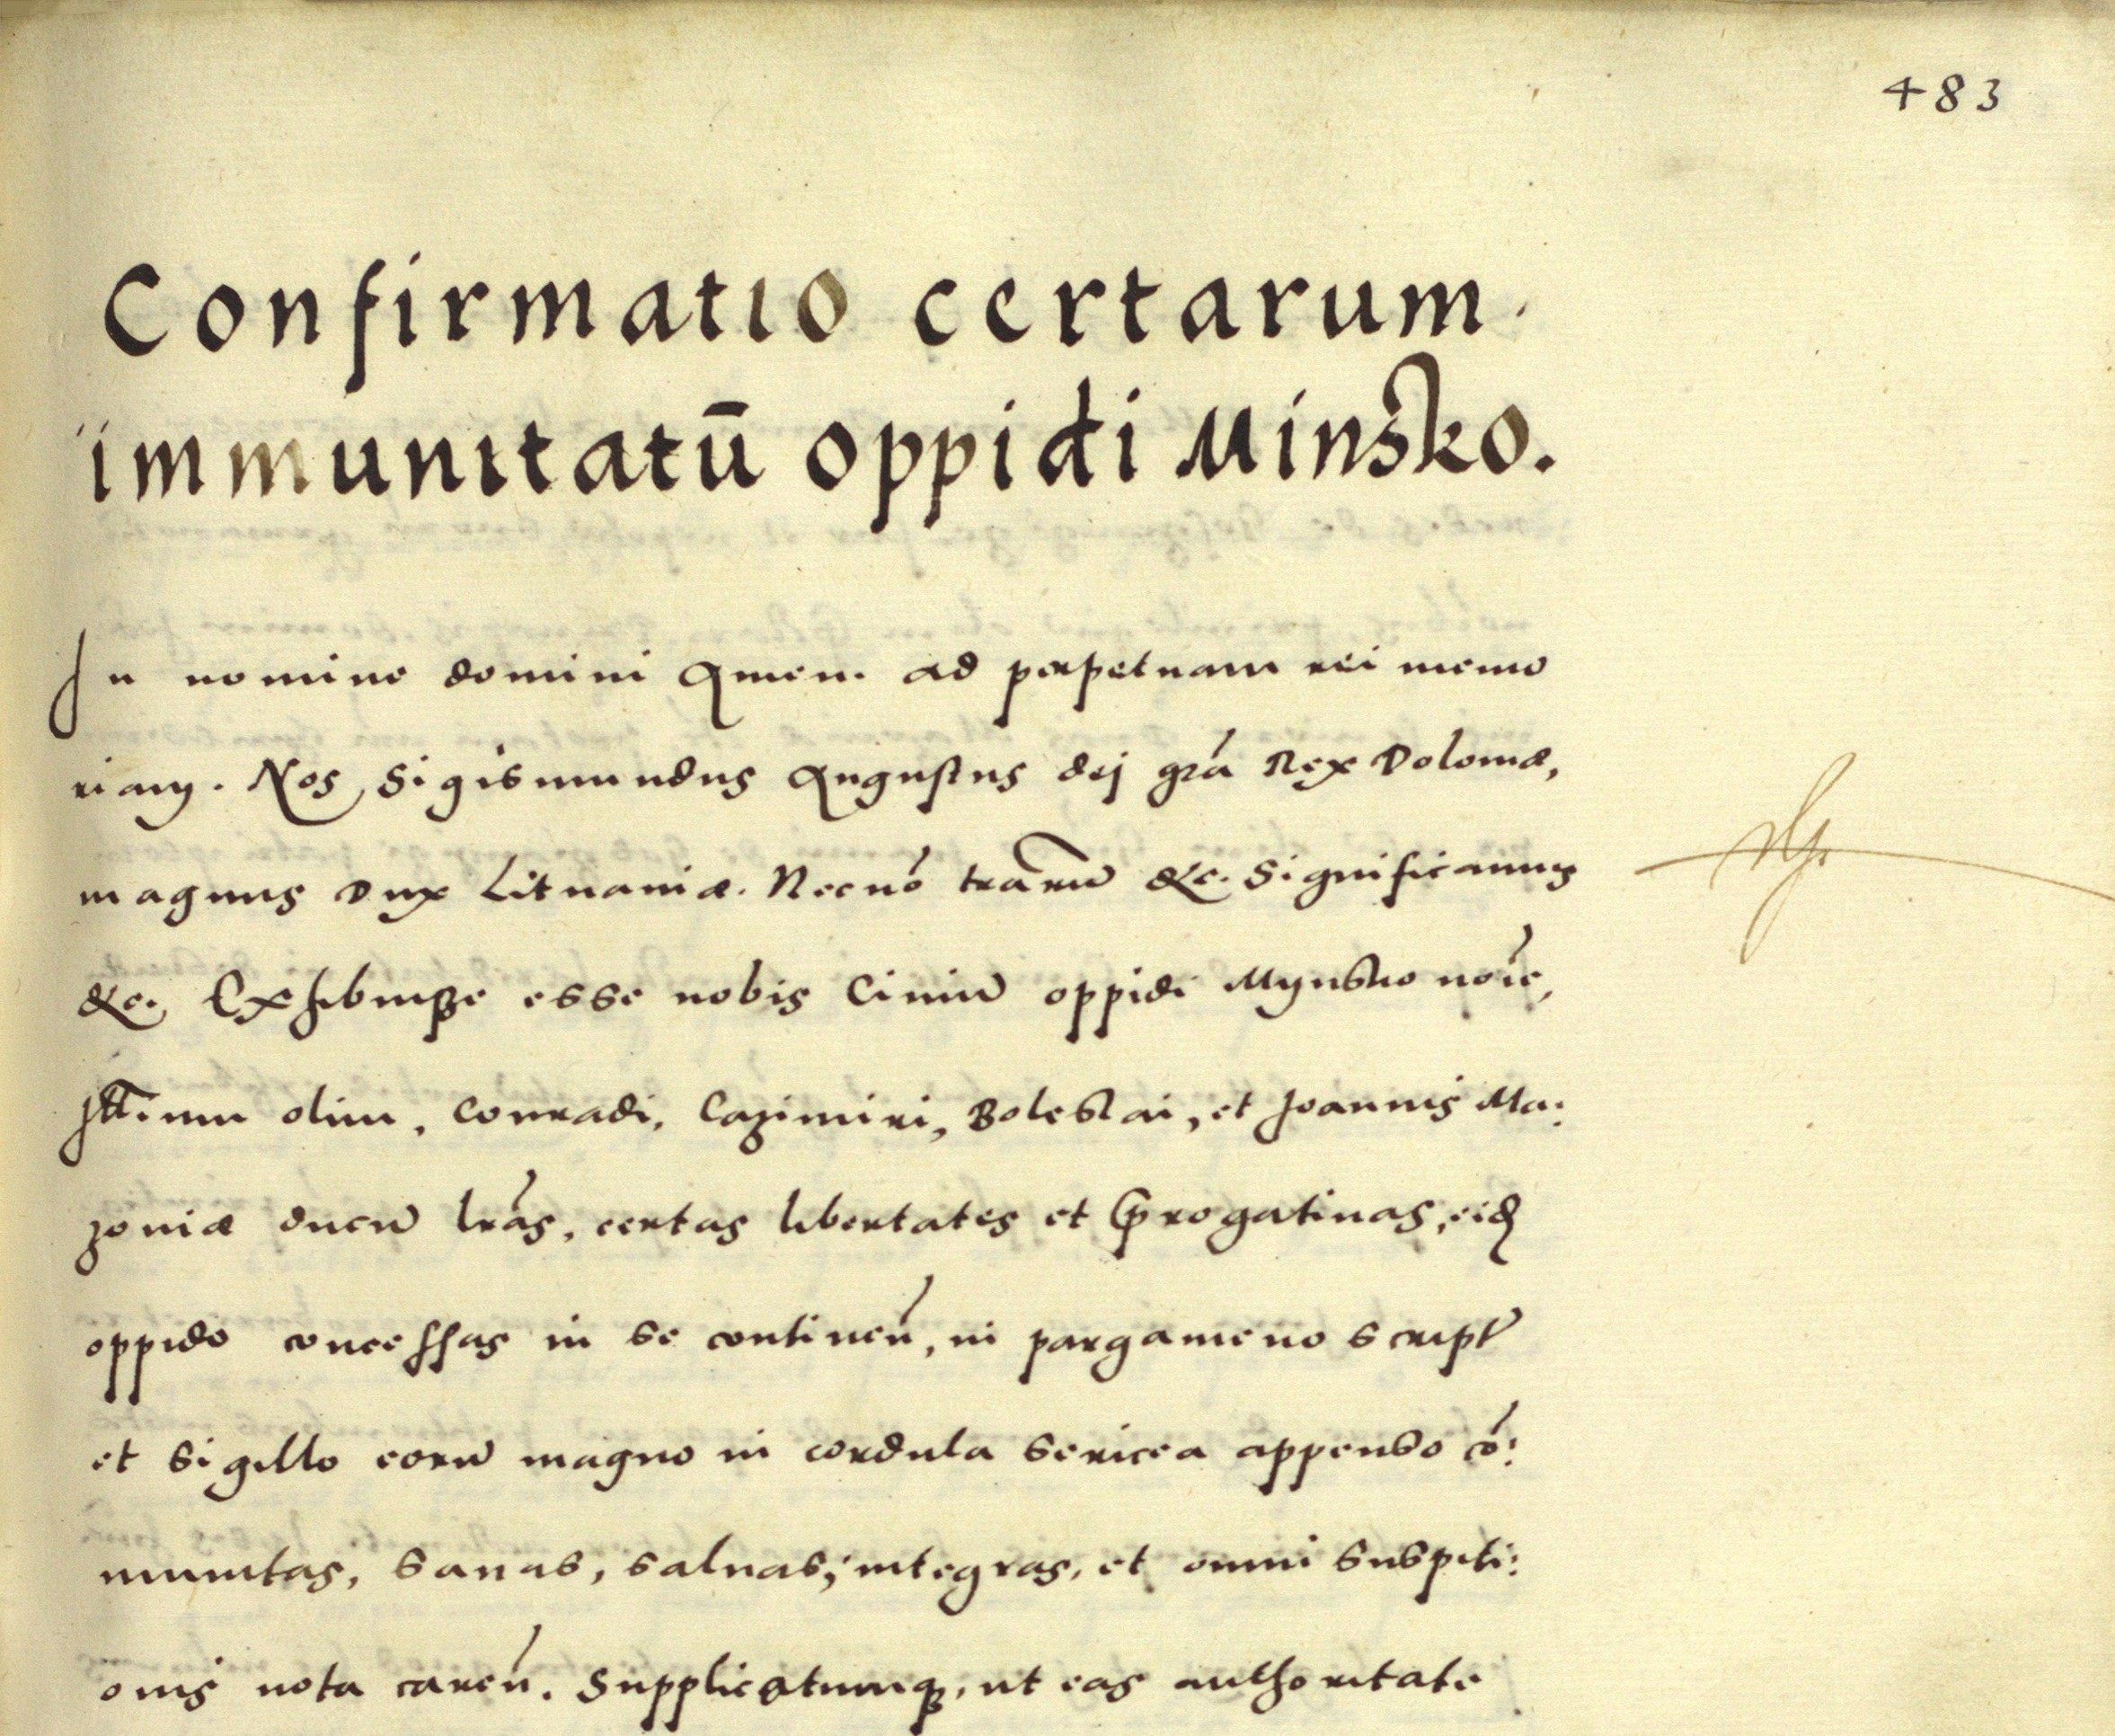 483
Confirmatio certarum
immunitatū oppidi Minsko.
In nomine domini Amen. ad perpetuam rei memo
riam. Nos Sigismundus Augustus dej gra Rex Poloniæ,
magnus Dux Lituaniæ. Necnō trarū &c. Significamus
&c. Exhibuisse esse nobis Ciuiū oppidi Mynsko noie,
olim, Conradi, Cazimiri, Boleslai, et Joannis Ma:
zoniæ ducū lras, certas libertates et prrogatiuas, eid
oppido concessas in se continen, in pargameno script
et sigillo eorū magno in cordula sericea appenso cō:
munitas, sanas, saluas, integras, et omni suspiti:
onis nota caren. Supplicatumq, ut eas authoritate